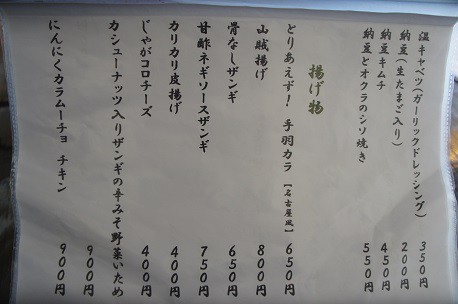 温キャベツ(ガーリックドレッシング) 350円
納豆(生たまご入り) 200円
納豆キムチ 450円
納豆とオクラのシソ焼き 550円
揚げ物
とりあえず! 手羽カラ【名古屋風】 650円
山賊揚げ 800円
骨なしザンギ 650円
甘酢ネギソースザンギ 750円
カリカリ皮揚げ 400円
じゃがコロチーズ 400円
カシューナッツ入りザンギの辛みそ野菜いため 900円
にんにくカラムーチョ チキン 900円